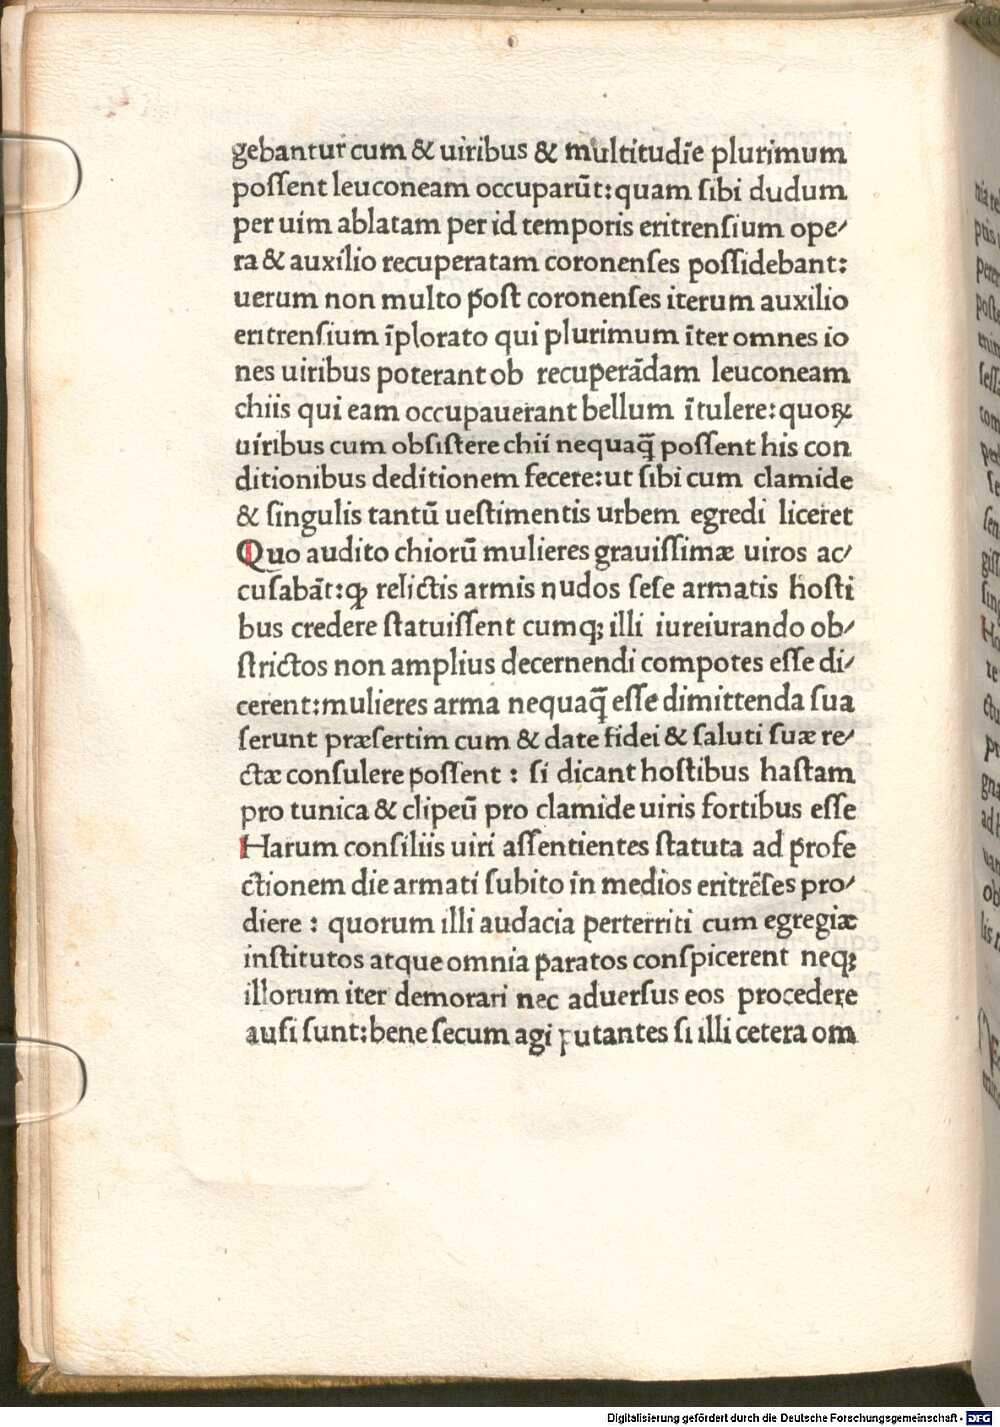 gebantur cum & uiribus & multitudīe plurimum
poſſent leuconeam occuparūt: quam ſibi dudum
per uim ablatam per id temporis eritrenſium ope⸗
ra & auxilio recuperatam coronenſes poſſidebant:
uerum non multo poſt coronenſes iterum auxilio
eritrenſium īplorato qui plurimum īter omnes io
nes uiribus poterant ob recuperādam leuconeam
chiis qui eam occupauerant bellum ītulere: quoꝝ
uiribus cum obſiſtere chii nequaq̄ poſſent his con
ditionibus deditionem fecere: ut ſibi cum clamide
& ſingulis tantū ueſtimentis urbem egredi liceret
Quo audito chiorū mulieres grauiſſimæ uiros ac⸗
cuſabāt: ꝙ relictis armis nudos ſeſe armatis hoſti
bus credere ſtatuiſſent cumq; illi iureiurando ob⸗
ſtrictos non amplius decernendi compotes eſſe di⸗
cerent: mulieres arma nequaq̄ eſſe dimittenda ſua
ſerunt præſertim cum & date fidei & ſaluti ſuæ re⸗
ctæ conſulere poſſent : ſi dicant hoſtibus haſtam
pro tunica & clipeū pro clamide uiris fortibus eſſe
Harum conſiliis uiri aſſentientes ſtatuta ad profe
ctionem die armati ſubito in medios eritrēſes pro⸗
diere : quorum illi audacia perterriti cum egregiæ
inſtitutos atque omnia paratos conſpicerent neq;
illorum iter demorari nec aduerſus eos procedere
auſi ſunt: bene ſecum agi putantes ſi illi cetera om
Digitalisierung gefördert durch die Deutsche Forschungsgemeinschaft - DFG